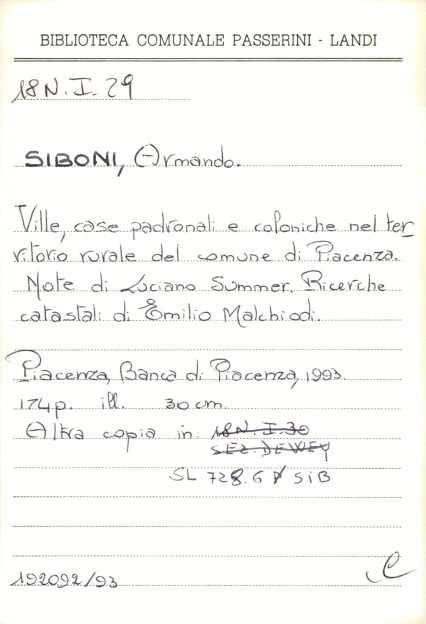 BIBLIOTECA COMUNALE PASSERINI - LANDI
18N.I.29
SIBONI, Armando.
Ville, case padronali e coloniche nel ter
ritorio rurale del comune di Piacenza.
Note di Luciano Summer. Ricerche
catastali di Emilio Malchiodi.
Piacenza, Banca di Piacenza, 1993.
174p. ill. 30 cm.
Altra copia in 18N.I.30
SEZ. DEWEY
SL 728.6 SIB
192092/93